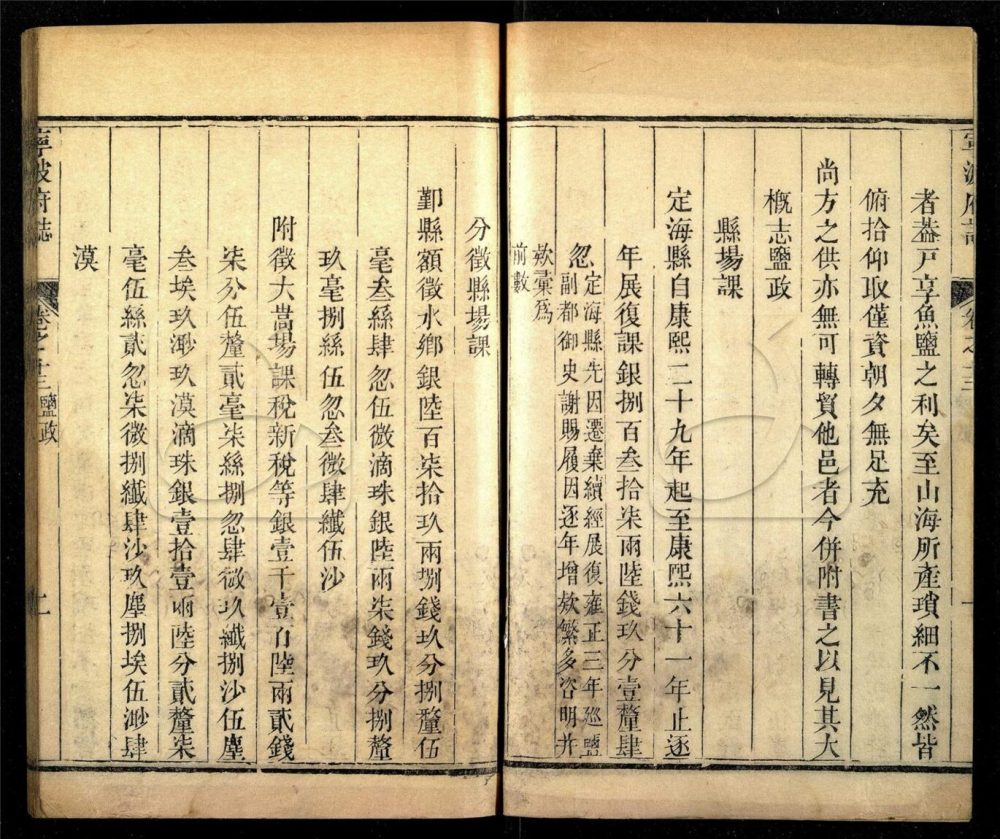 寧波府志
卷之十三
一
者葢戸享魚鹽之利矣至山海所產瑣細不一然皆
俯拾仰取僅資朝夕無足充
尚方之供亦無可轉貿他邑者今併附書之以見其大
槪志鹽政
縣場課
定海縣自康熙二十九年起至康熙六十一年止逐
年展復課銀捌百叁拾柒兩陸錢玖分壹釐肆
忽定海縣先因遷棄續經展復雍正三年廵鹽
副都御史謝賜履因逐年增欵繁多咨明幷
欵彚爲
前數
分徵縣場課
鄞縣額徵水鄕銀陸百柒拾玖兩捌錢玖分捌釐伍
毫叁絲肆忽伍微滴珠銀陸兩柒錢玖分捌釐
玖毫捌絲伍忽叁微肆纖伍沙
附徵大嵩場課稅新稅等銀壹千壹百陸兩貳錢
柒分伍釐貳毫柒絲捌忽肆微玖纖捌沙伍塵
叁埃玖渺玖漠滴珠銀壹拾壹兩陸分貳釐柒
毫伍絲貳忽柒微捌纖肆沙玖塵捌埃伍渺肆
漠
寧波府誌
卷之十三
鹽政
二